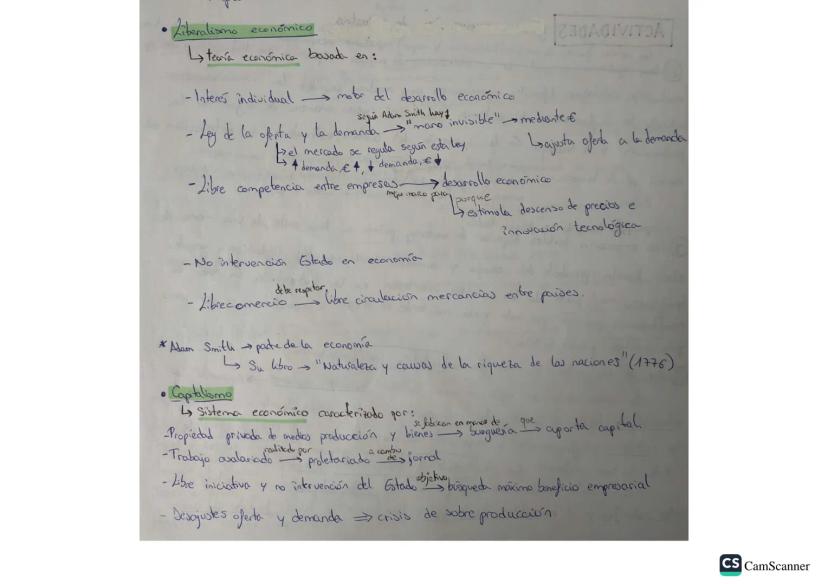 ACTIVIDADES
• Liberalismo económico
↳ teoría económica basada en:
- Interés individual → motor del desarrollo económico
según Adam Smith hay
- Ley de la oferta y la demanda → "mano invisible" → mediante €
↳ ajusta oferta a la demanda
↳ el mercado se regula según esta ley
↳ ↑ demanda, € ↑, ↓ demanda, € ↓
- Libre competencia entre empresas → desarrollo económico
para porque
↳ estimula descenso de precios e
innovación tecnológica
- No intervención Estado en economía
debe respetar
- Librecomercio → libre circulación mercancías entre países.
* Adam Smith → padre de la economía
↳ Su libro → "Naturaleza y causas de la riqueza de las naciones" (1776)
• Capitalismo
↳ Sistema económico caracterizado por:
en manos de que
- Propiedad privada de medios producción y bienes → burguesía → aporta capital.
realizado por a cambio
- Trabajo asalariado → proletariado de → jornal
objetivo
- Libre iniciativa y no intervención del Estado → búsqueda máximo beneficio empresarial
- Desajustes oferta y demanda ⇒ crisis de sobreproducción
CS CamScanner